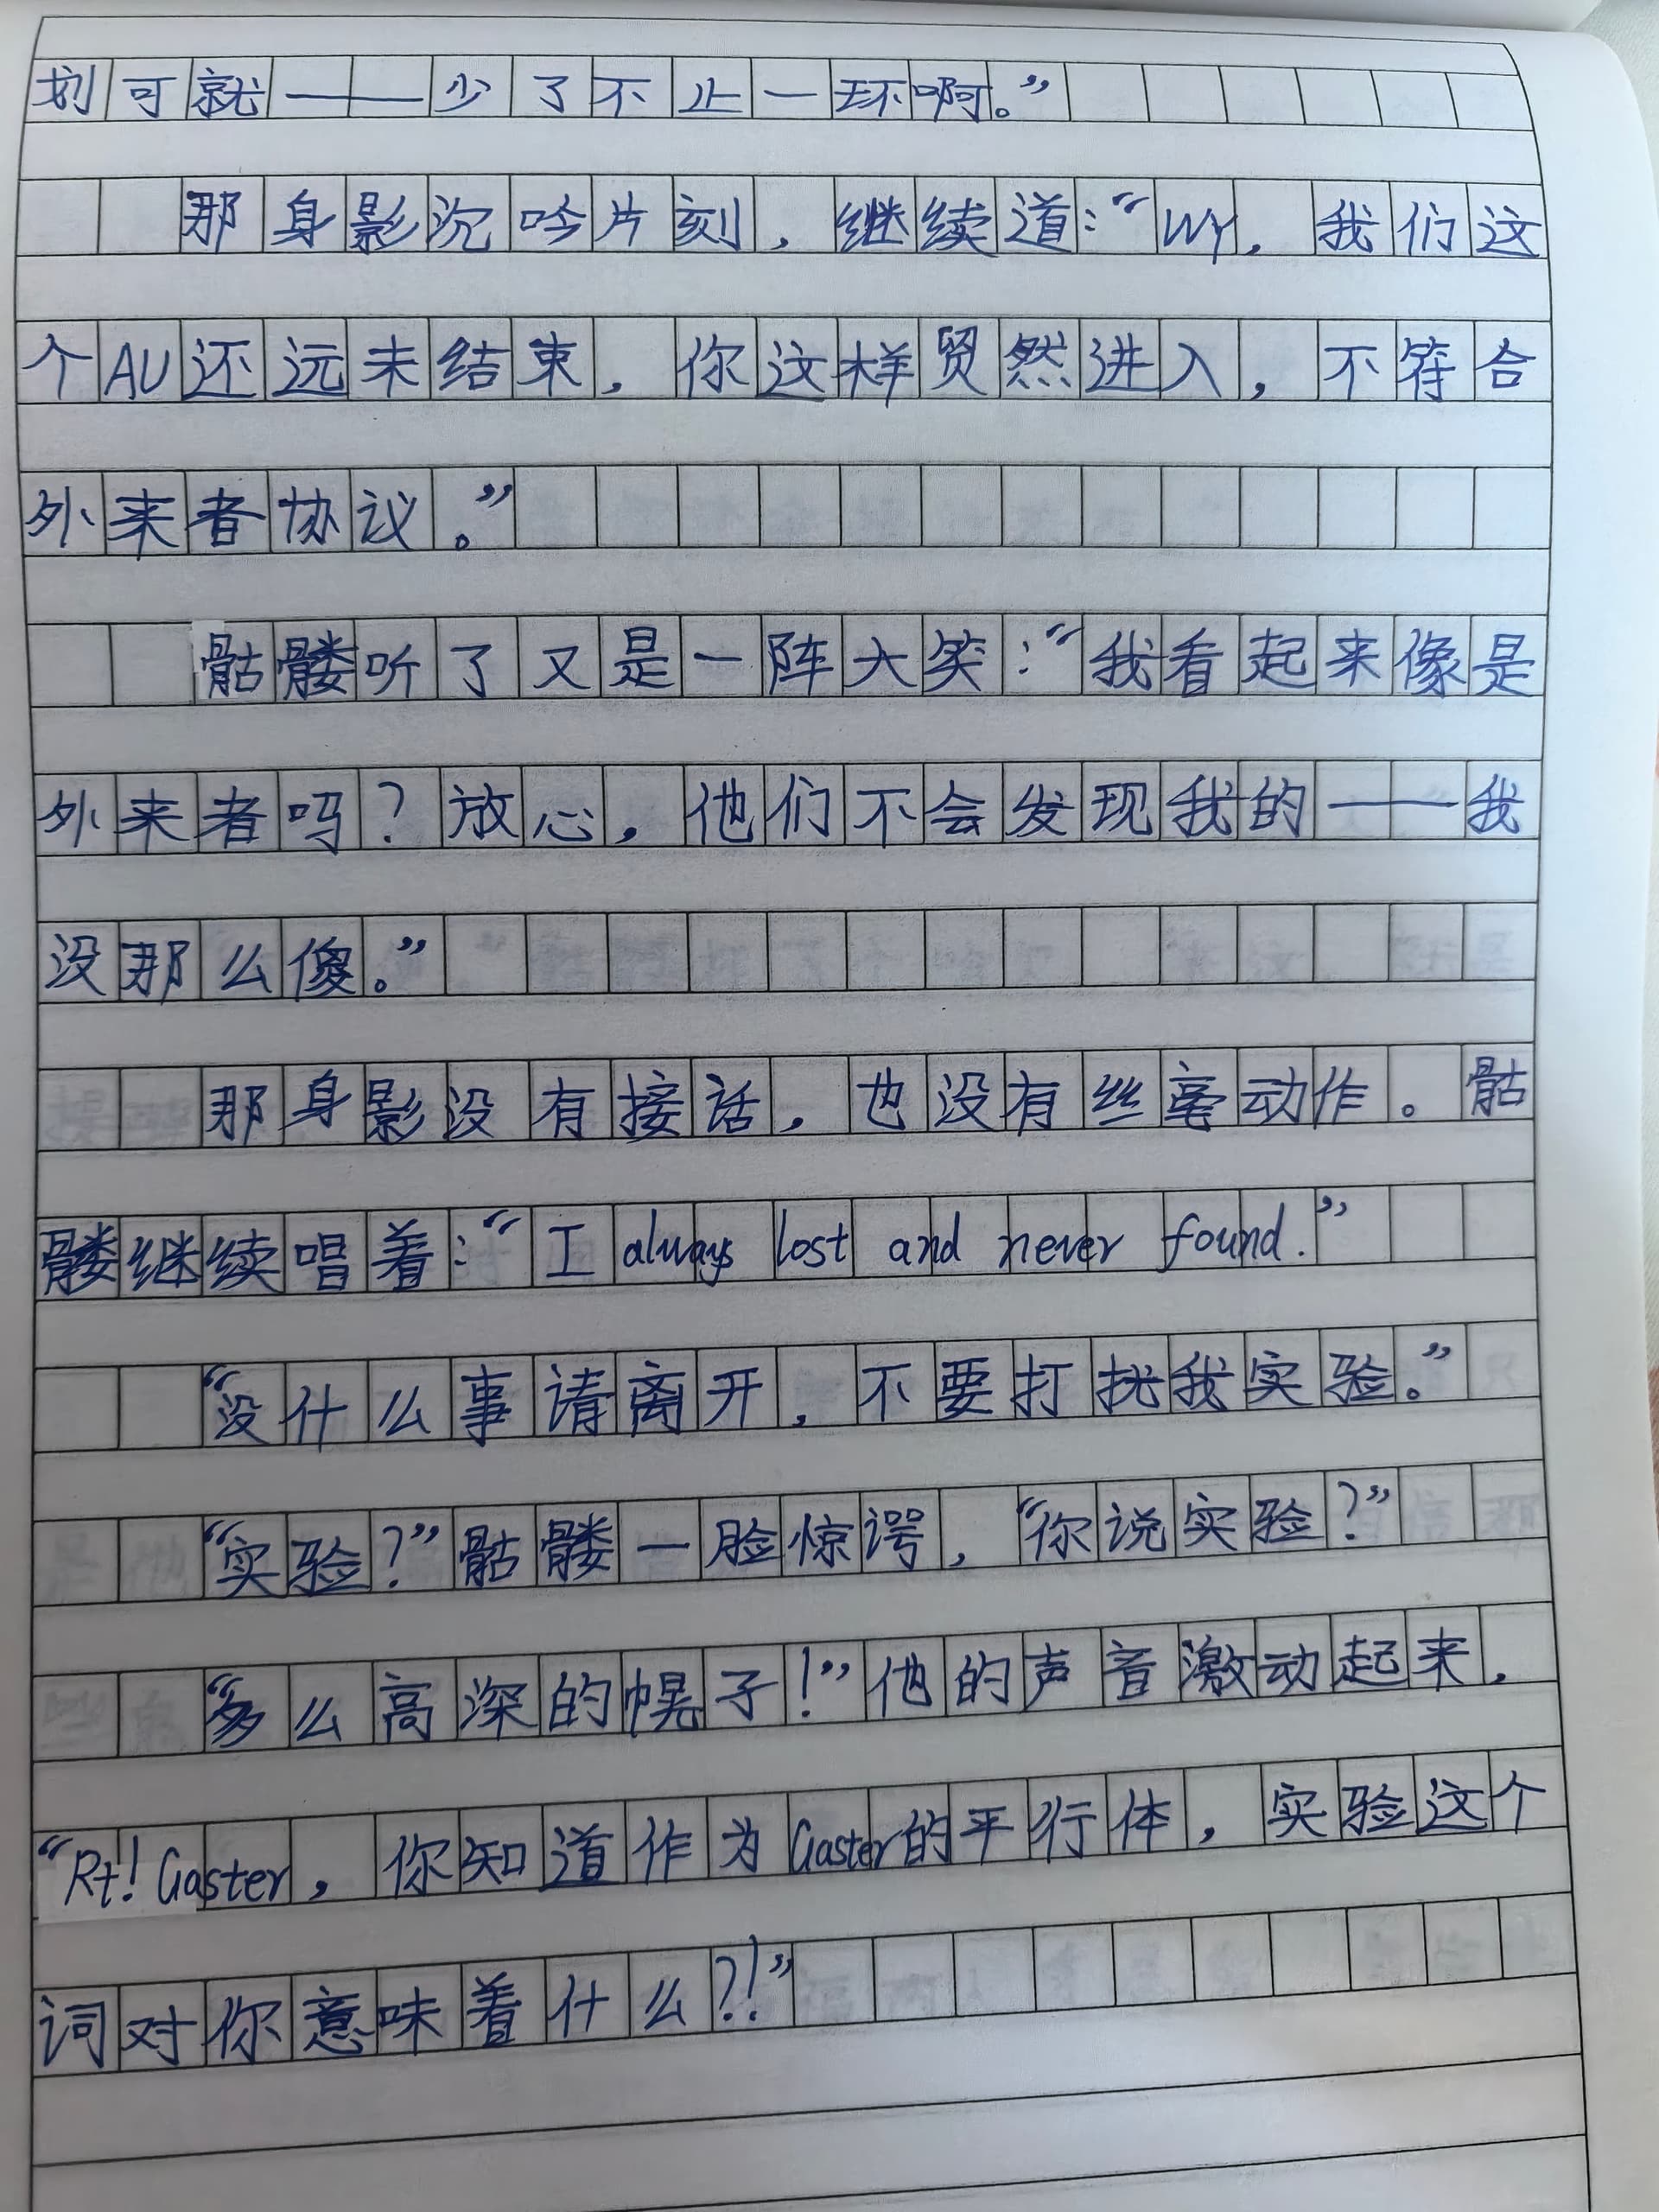 划可就——少了不止一环啊。”
那身影沉吟片刻，继续道：“WY，我们这
个AU还远未结束，你这样贸然进入，不符合
外来者协议。”
骷髅听了又是一阵大笑：“我看起来像是
外来者吗？放心，他们不会发现我的——我
没那么傻。”
那身影没有接话，也没有丝毫动作。骷
髅继续唱着：“I always lost and never found.”
“没什么事请离开，不要打扰我实验。”
“实验？”骷髅一脸惊谔，“你说实验？”
“多么高深的幌子！”他的声音激动起来，
“Rt! Gaster，你知道作为Gaster的平行体，实验这个
词对你意味着什么？！”